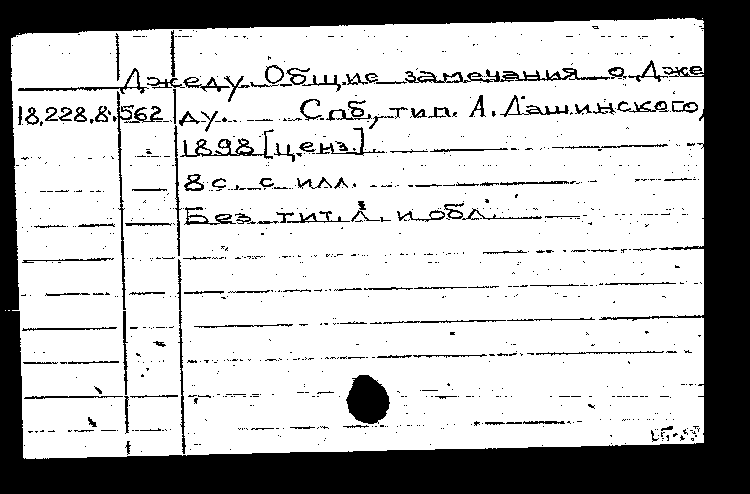 Джеду. Общие замечания о Дже
18,228.8.562 ду. Спб., тип. А. Лашинского,
1898 [ценз.].
8 с. с илл.
Без тит. л. и обл.